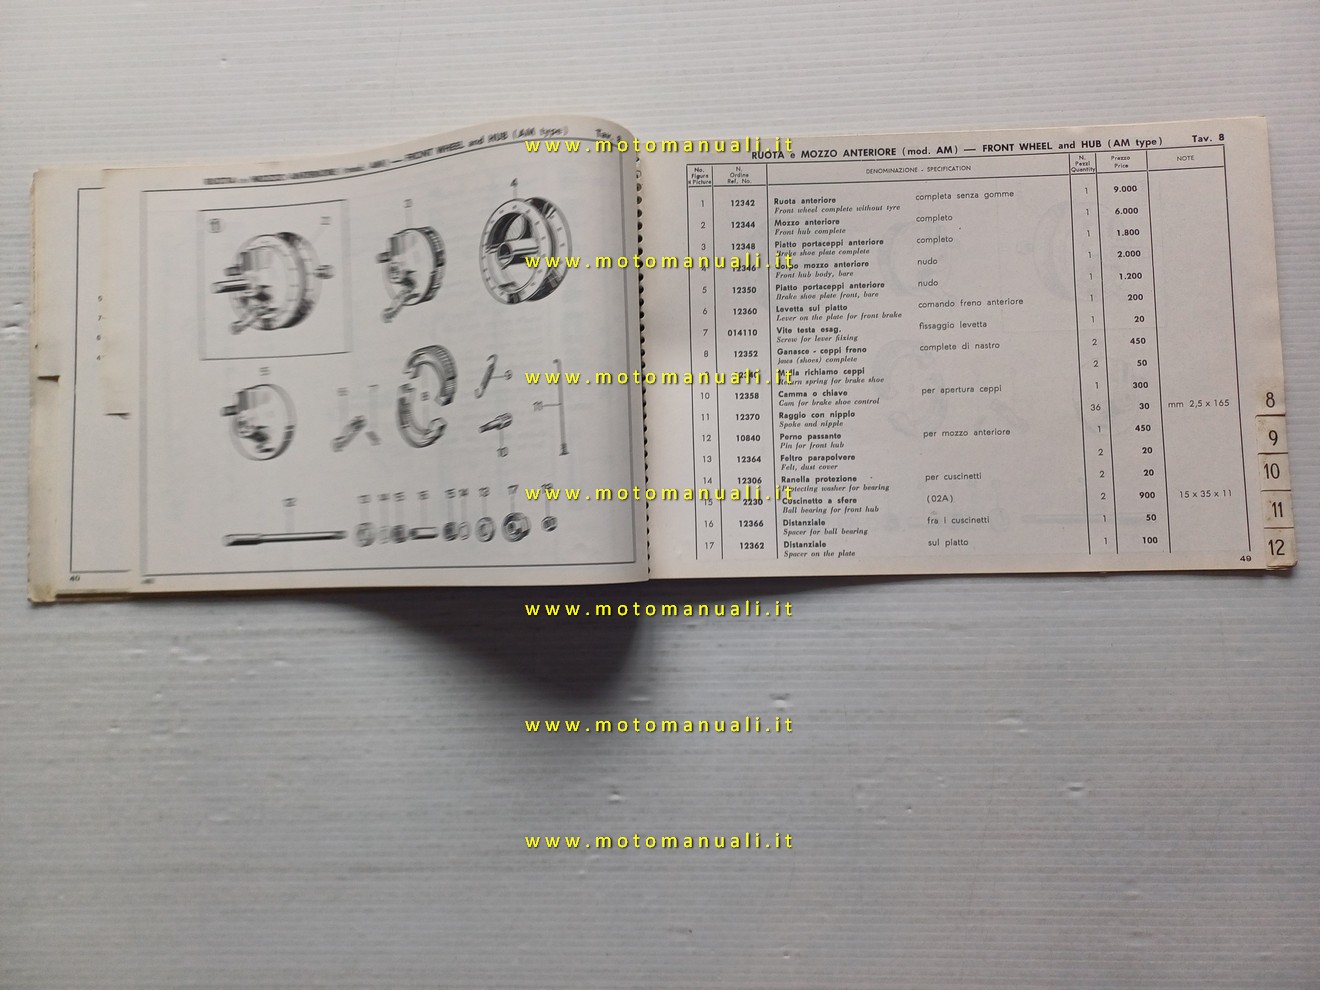 RUOTA e MOZZO ANTERIORE (mod. AM) — FRONT WHEEL and HUB (AM type) Tav. 8
4
9
10
17
www.motomanuali.it
www.motomanuali.it
www.motomanuali.it
www.motomanuali.it
www.motomanuali.it
www.motomanuali.it
www.motomanuali.it
RUOTA e MOZZO ANTERIORE (mod. AM) — FRONT WHEEL and HUB (AM type) Tav. 8
No. Figura e Picture N. Ordine Ref. No. DENOMINAZIONE - SPECIFICATION N. Pezzi Quantity Prezzo Price NOTE
1 12342 Ruota anteriore completa senza gomme 1 9.000
Front wheel complete without tyre
2 12344 Mozzo anteriore completo 1 6.000
Front hub complete
3 12348 Piatto portaceppi anteriore completo 1 1.800
Brake shoe plate complete
4 12346 mozzo anteriore nudo 1 2.000
Front hub body, bare
5 12350 Piatto portaceppi anteriore nudo 1 1.200
Brake shoe plate front, bare
6 12360 Levetta sul piatto comando freno anteriore 1 200
Lever on the plate for front brake
7 014110 Vite testa esag. fissaggio levetta 1 20
Screw for lever fixing
8 12352 Ganasce - ceppi freno complete di nastro 2 450
Jaws (shoes) complete
Molla richiamo ceppi 2 50
Return spring for brake shoe
10 12358 Camma o chiave per apertura ceppi 1 300
Cam for brake shoe control
11 12370 Raggio con nipplo 36 30 mm 2,5 x 165
Spoke and nipple
12 10840 Perno passante per mozzo anteriore 1 450
Pin for front hub
13 12364 Feltro parapolvere 2 20
Felt, dust cover
14 12306 Ranella protezione per cuscinetti 2 20
Protecting washer for bearing
15 2230 Cuscinetto a sfere (02A) 2 900 15 x 35 x 11
Ball bearing for front hub
16 12366 Distanziale fra i cuscinetti 1 50
Spacer for ball bearing
17 12362 Distanziale sul piatto 1 100
Spacer on the plate
49
8
9
10
11
12